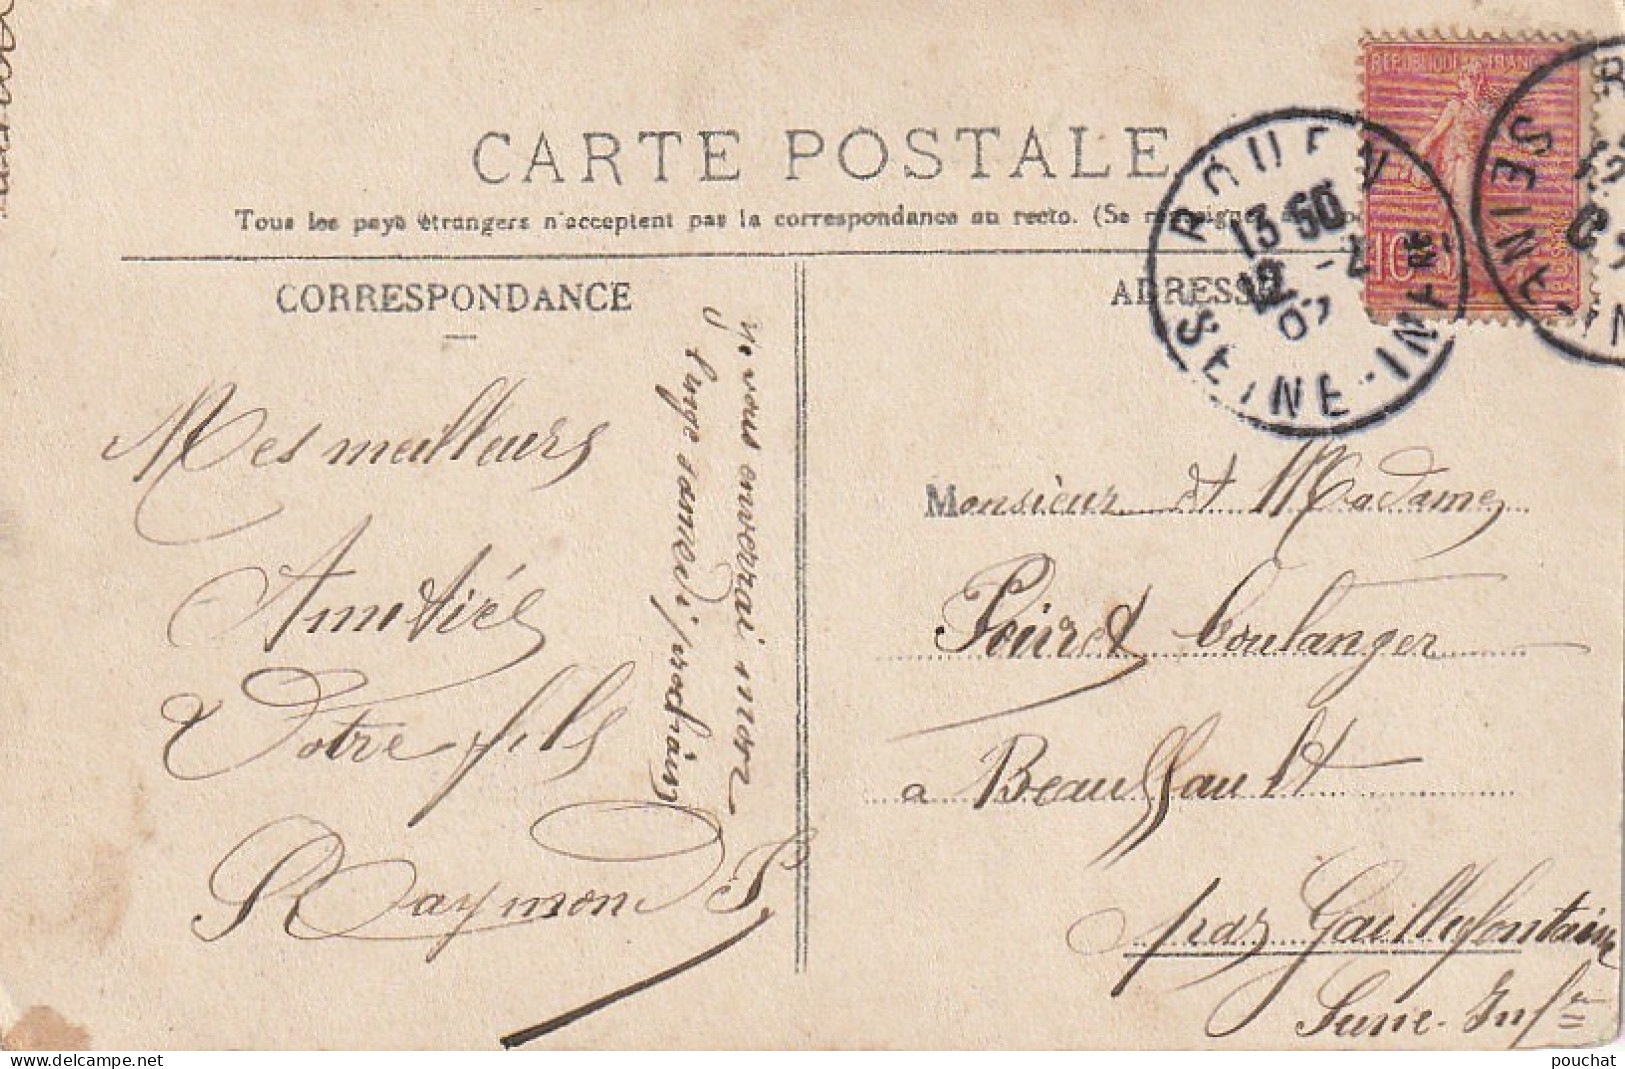 CARTE POSTALE
Tous les pays étrangers n'acceptent pas la correspondance au recto. (Se
CORRESPONDANCE
ADRESSE
REPUBLIQUE FRANC
10
ROUEN
13 50
12 -2
07
SEINE-INFRE
SEINE-IN
Mes meilleurs
Amitiés
Votre fils
Raymond P.
Je vous enverrai mon
linge samedi prochain
Monsieur et Madame
Poiret boulanger
a Beaussault
par Gaillefontaine
Seine-Infre
pouchat